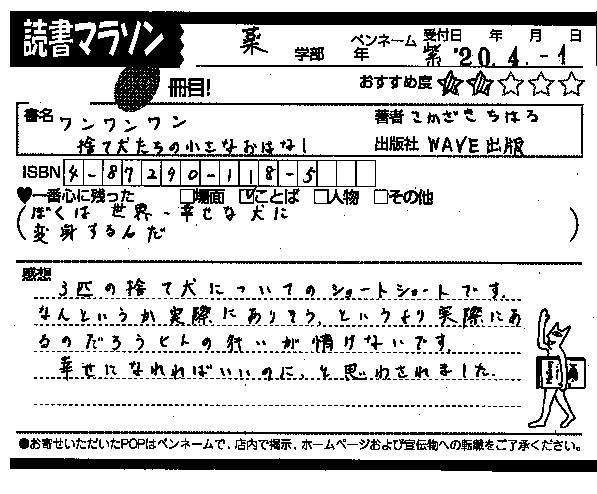 読書マラソン
薬 学部 年 ペンネーム 紫 受付日 年 月 日 '20.4.-1
冊目! おすすめ度 ★★☆☆☆
書名 ワンワンワン 著者 さかざきちはる
捨て犬たちの小さなおはなし 出版社 WAVE出版
ISBN 4-87290-118-5
♥一番心に残った □場面 ☑ことば □人物 □その他
(ぼくは世界一幸せな犬に
変身するんだ)
感想
3匹の捨て犬についてのショートショートです。
なんというか実際にありそう、というより実際にあ
るのだろうヒトの行いが情けないです。
幸せになれればいいのに、と思わされました。
●お寄せいただいたPOPはペンネームで、店内で掲示、ホームページおよび宣伝物への転載をご了承ください。